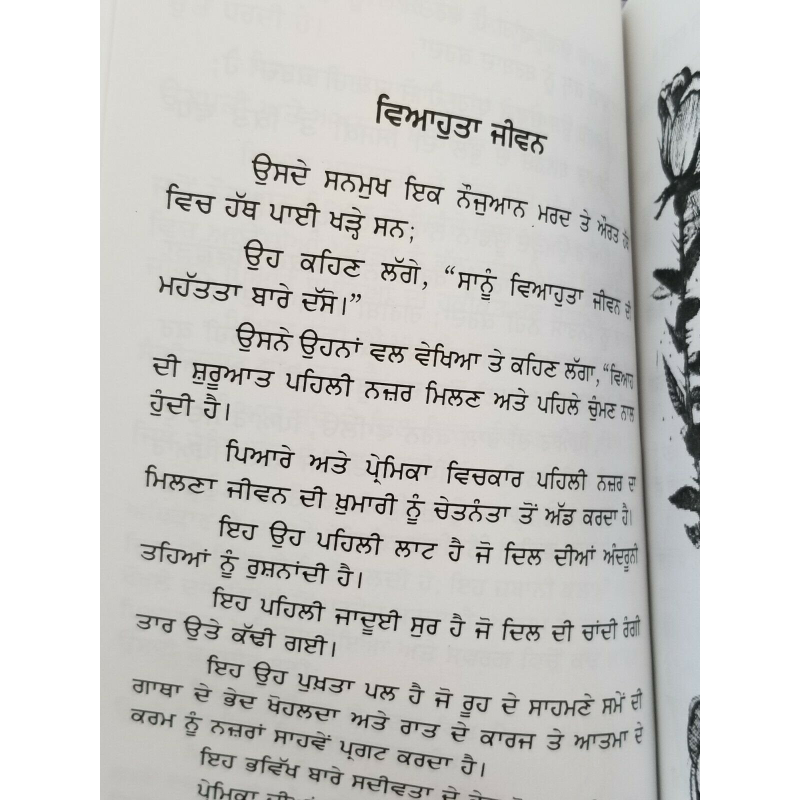 ਵਿਆਹੁਤਾ ਜੀਵਨ
ਉਸਦੇ ਸਨਮੁਖ ਇਕ ਨੌਜੁਆਨ ਮਰਦ ਤੇ ਔਰਤ
ਵਿਚ ਹੱਥ ਪਾਈ ਖੜ੍ਹੇ ਸਨ;
ਉਹ ਕਹਿਣ ਲੱਗੇ, “ਸਾਨੂੰ ਵਿਆਹੁਤਾ ਜੀਵਨ ਦੀ
ਮਹੱਤਤਾ ਬਾਰੇ ਦੱਸੋ।”
ਉਸਨੇ ਉਹਨਾਂ ਵਲ ਵੇਖਿਆ ਤੇ ਕਹਿਣ ਲੱਗਾ, “ਵਿਆਹ
ਦੀ ਸ਼ੁਰੂਆਤ ਪਹਿਲੀ ਨਜ਼ਰ ਮਿਲਣ ਅਤੇ ਪਹਿਲੇ ਚੁੰਮਣ ਨਾਲ
ਹੁੰਦੀ ਹੈ।
ਪਿਆਰੇ ਅਤੇ ਪ੍ਰੇਮਿਕਾ ਵਿਚਕਾਰ ਪਹਿਲੀ ਨਜ਼ਰ ਦਾ
ਮਿਲਣਾ ਜੀਵਨ ਦੀ ਖ਼ੁਮਾਰੀ ਨੂੰ ਚੇਤਨੰਤਾ ਤੋਂ ਅੱਡ ਕਰਦਾ ਹੈ।
ਇਹ ਉਹ ਪਹਿਲੀ ਲਾਟ ਹੈ ਜੋ ਦਿਲ ਦੀਆਂ ਅੰਦਰੂਨੀ
ਤਹਿਆਂ ਨੂੰ ਰੁਸ਼ਨਾਂਦੀ ਹੈ।
ਇਹ ਪਹਿਲੀ ਜਾਦੂਈ ਸੁਰ ਹੈ ਜੋ ਦਿਲ ਦੀ ਚਾਂਦੀ ਰੰਗੀ
ਤਾਰ ਉਤੇ ਕੱਢੀ ਗਈ।
ਇਹ ਉਹ ਪੁਖ਼ਤਾ ਪਲ ਹੈ ਜੋ ਰੂਹ ਦੇ ਸਾਹਮਣੇ ਸਮੇਂ ਦੀ
ਗਾਥਾ ਦੇ ਭੇਦ ਖੋਹਲਦਾ ਅਤੇ ਰਾਤ ਦੇ ਕਾਰਜ ਤੇ ਆਤਮਾ ਦੇ
ਕਰਮ ਨੂੰ ਨਜ਼ਰਾਂ ਸਾਹਵੇਂ ਪ੍ਰਗਟ ਕਰਦਾ ਹੈ।
ਇਹ ਭਵਿੱਖ ਬਾਰੇ ਸਦੀਵਤਾ ਦੇ
ਪ੍ਰੇਮਿਕਾ